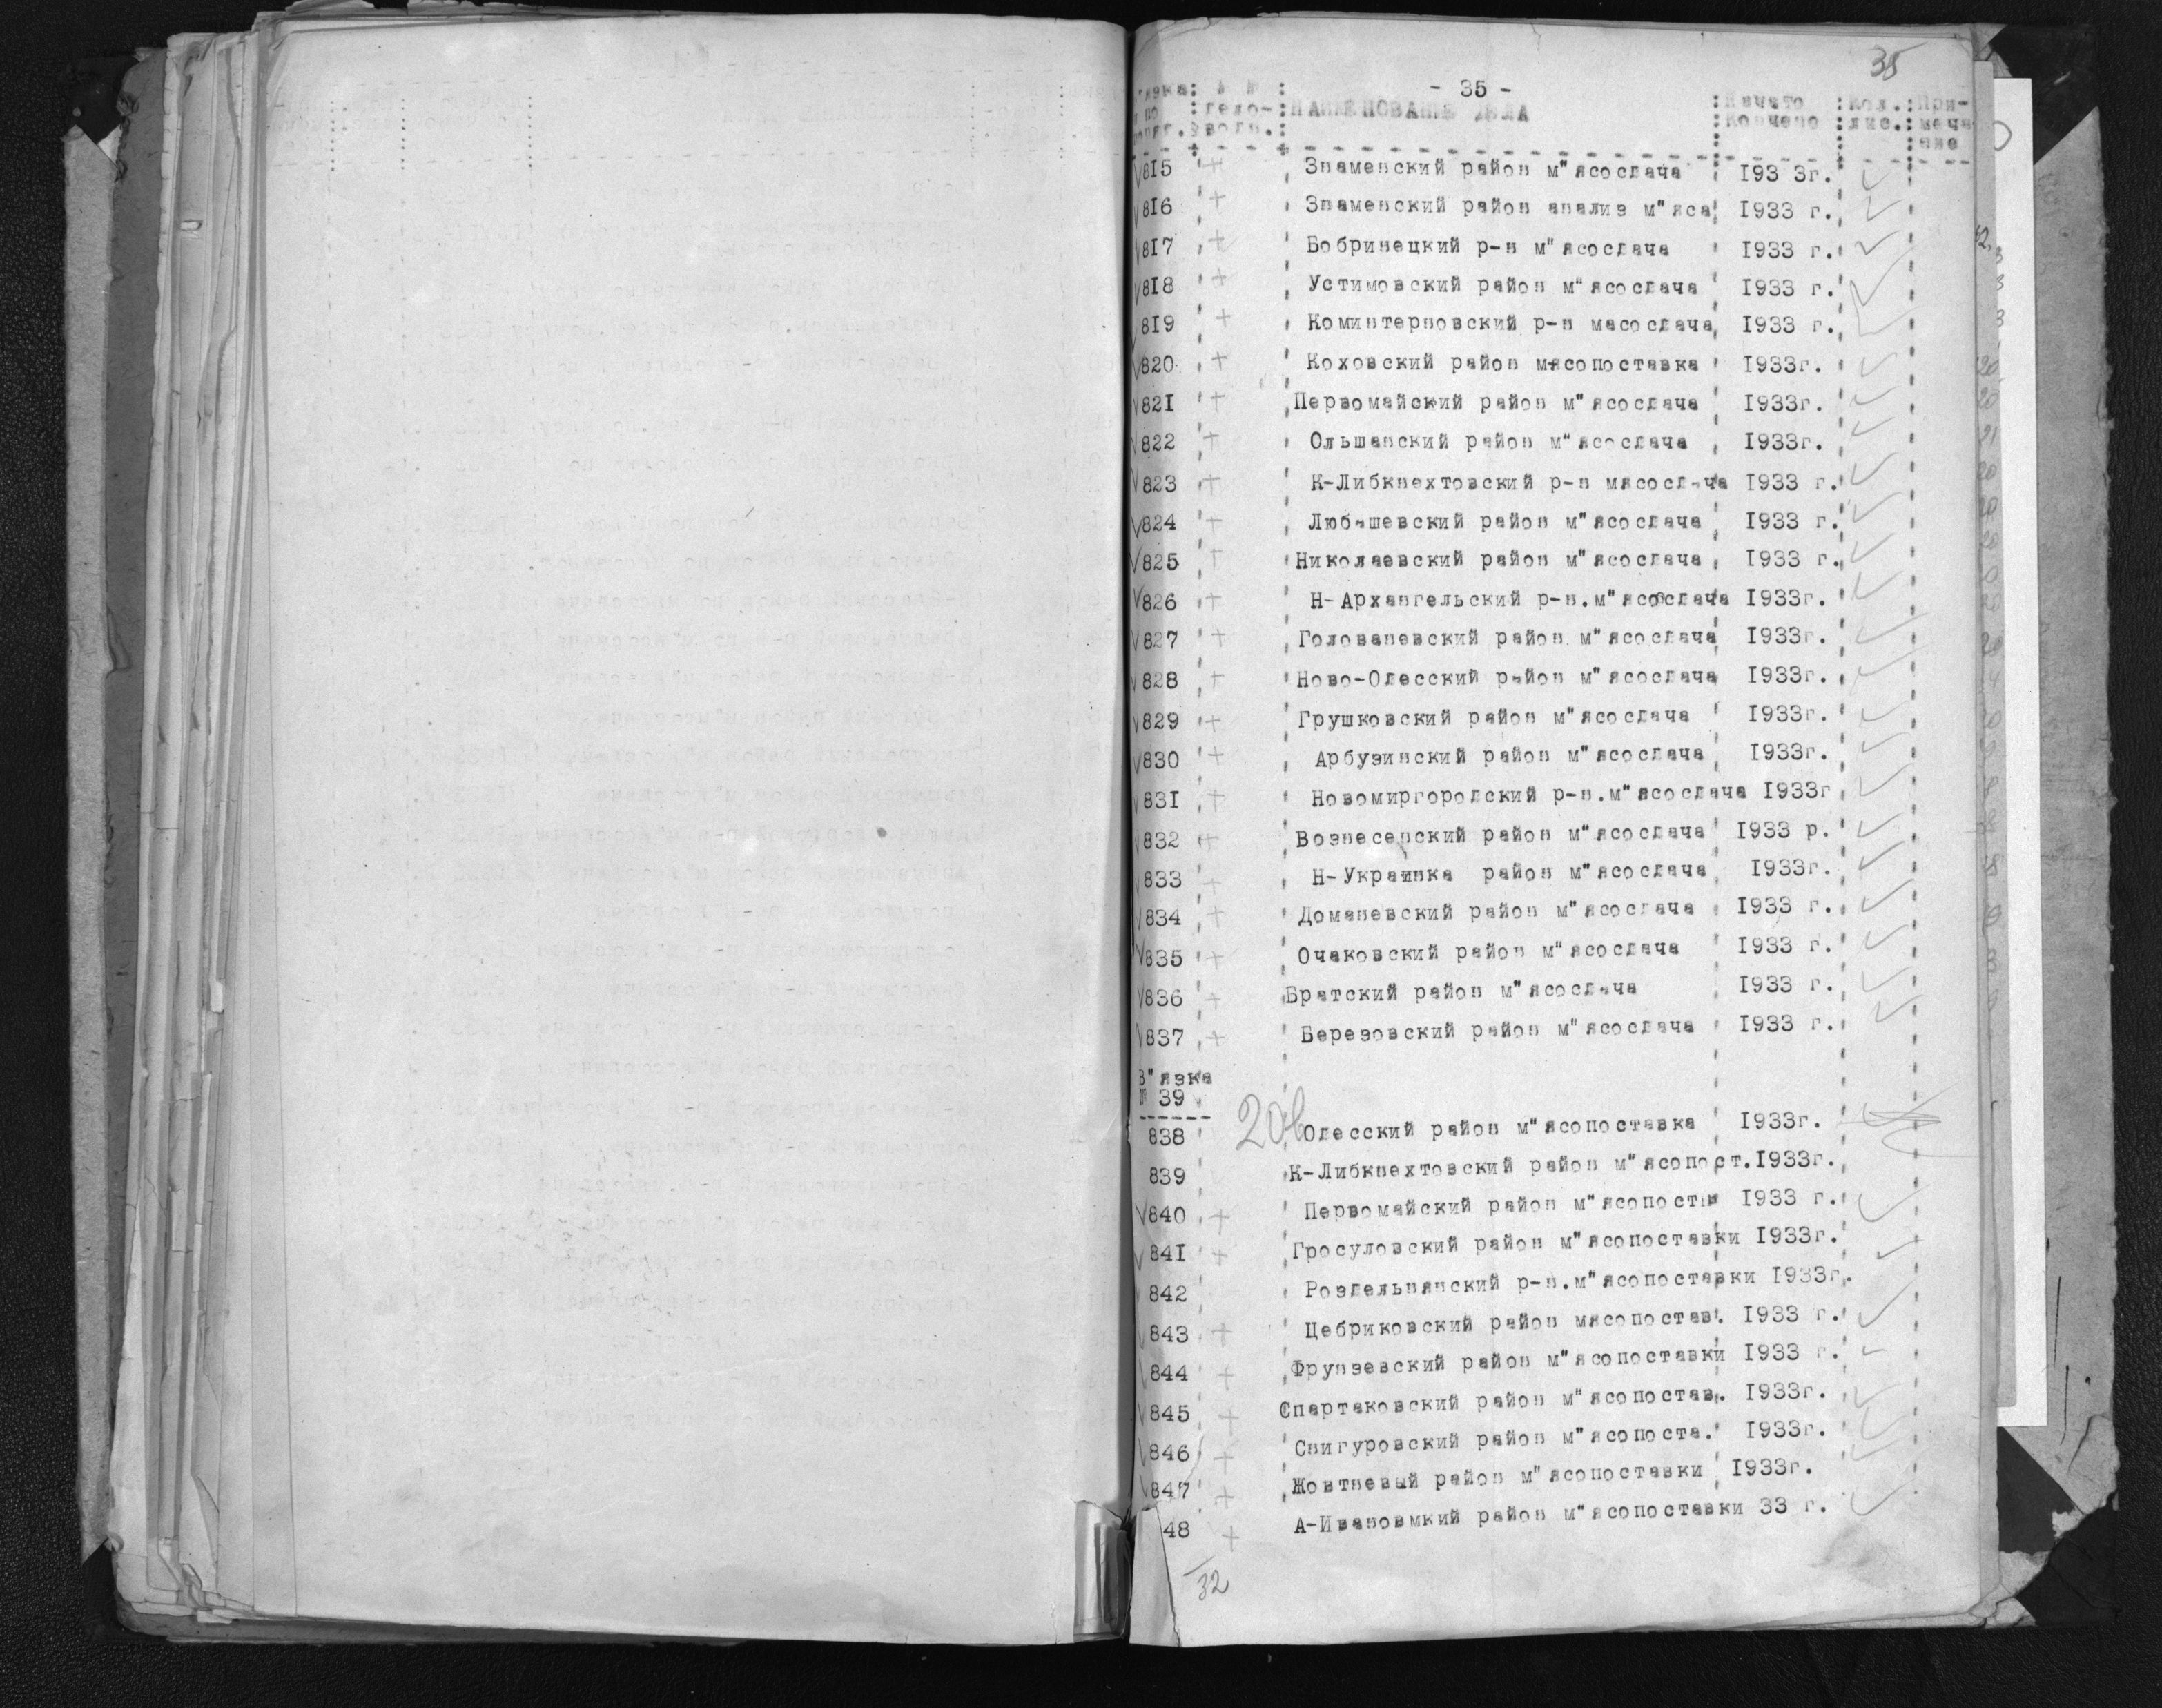 35
- 35 -
№ № НАИМЕНОВАНИЕ ДЕЛА Начато Кол. При-
по дело- кончено лис. меча
ние
815 + Знаменский район м"ясосдача 193 3г.
816 + Знаменский район анализ м"яса 1933 г.
817 + Бобринецкий р-н м"ясосдача 1933 г.
818 + Устимовский район м"ясосдача 1933 г.
819 + Коминтерновский р-н масосдача 1933 г.
820 + Коховский район мясопоставка 1933г.
821 + Первомайский район м"ясосдача 1933г.
822 + Ольшанский район м"ясосдача 1933г.
823 + К-Либкнехтовский р-н мясосдача 1933 г.
824 + Любашевский район м"ясосдача 1933 г.
825 + Николаевский район м"ясосдача 1933 г.
826 + Н-Архангельский р-н.м"ясосдача 1933г.
827 + Голованевский район м"ясосдача 1933г.
828 + Ново-Одесский район м"ясосдача 1933г.
829 + Грушковский район м"ясосдача 1933г.
830 + Арбузинский район м"ясосдача 1933г.
831 + Новомиргородский р-н.м"ясосдача 1933г
832 + Вознесенский район м"ясосдача 1933 р.
833 + Н-Украинка район м"ясосдача 1933г.
834 + Доманевский район м"ясосдача 1933 г.
835 + Очаковский район м"ясосдача 1933 г.
836 + Братский район м"ясосдача 1933 г.
837 + Березовский район м"ясосдача 1933 г.
В"язка
№ 39
838 Одесский район м"ясопоставка 1933г.
839 К-Либкнехтовский район м"ясопост.1933г.
840 + Первомайский район м"ясопостав 1933 г.
841 + Гросуловский район м"ясопоставки 1933г.
842 Роздельнянский р-н.м"ясопоставки 1933г.
843 + Цебриковский район мясопостав. 1933 г.
844 + Фрунзевский район м"ясопоставки 1933 г.
845 + Спартаковский район м"ясопостав. 1933г.
846 + Снигуровский район м"ясопоста. 1933г.
847 + Жовтневый район м"ясопоставки 1933г.
48 + А-Ивановмкий район м"ясопоставки 33 г.
32